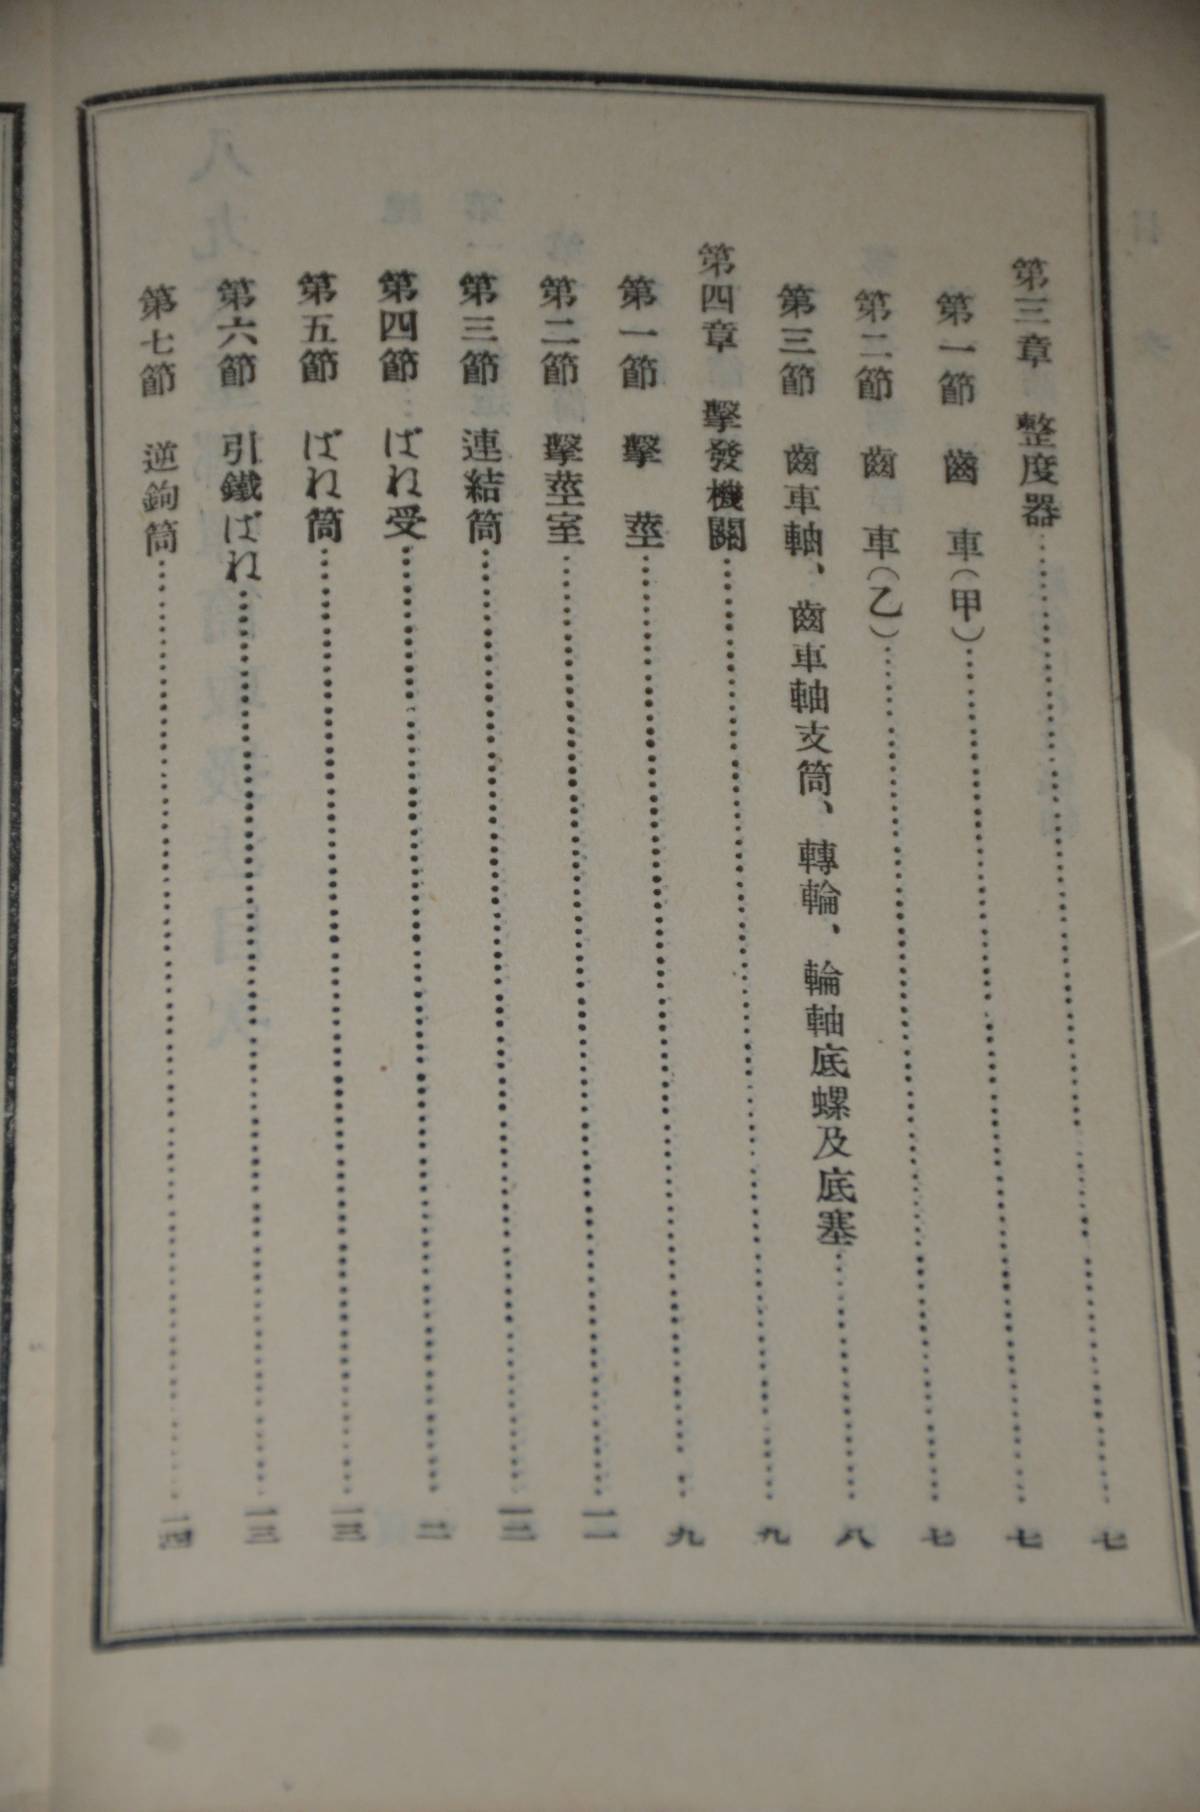 第三章 整度器……七
第一節 齒車（甲）……七
第二節 齒車（乙）……七
第三節 齒車軸、齒車軸支筒、轉輪、輪軸底螺及底塞……八
第四章 擊發機關……九
第一節 擊莖……九
第二節 擊莖室……一一
第三節 連結筒……一二
第四節 ばね受……一二
第五節 ばね筒……一三
第六節 引鐵ばね……一三
第七節 逆鉤筒……一四